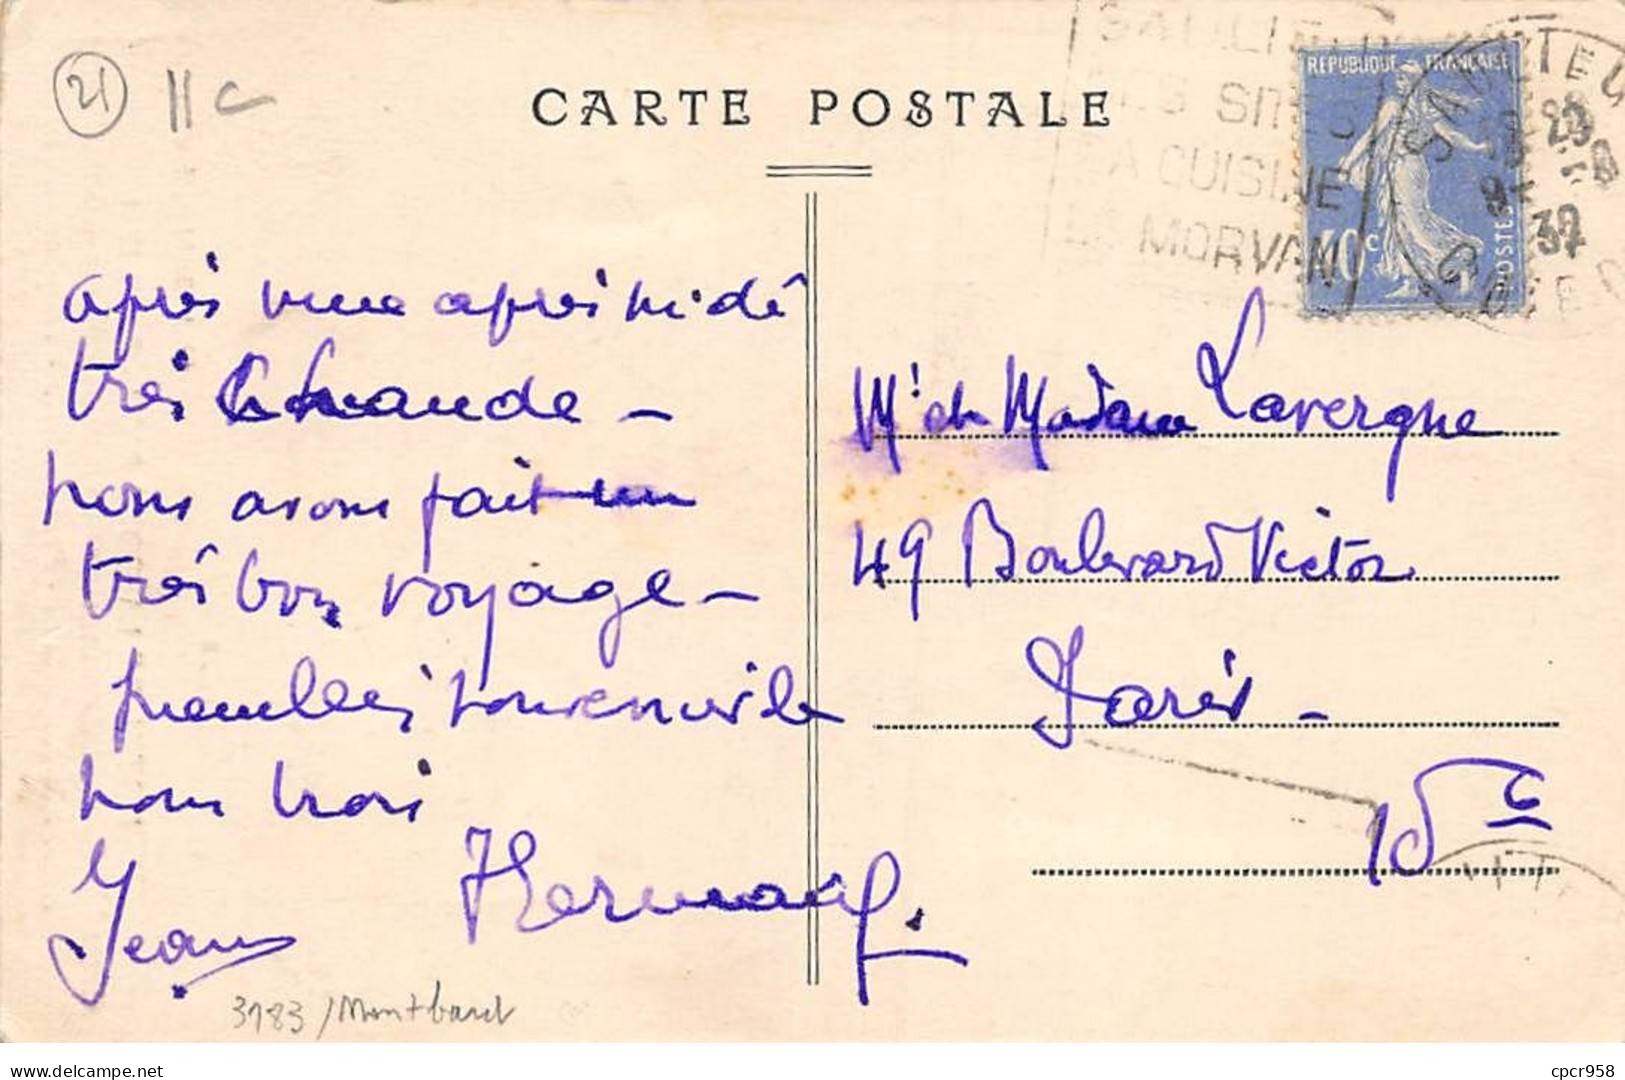 21
11 c
CARTE POSTALE
SAULIEU
SES SITES
SA CUISINE
LE MORVAN
REPUBLIQUE FRANÇAISE
40c
POSTES
SAULIEU
20
32
COTE D
après une après midi
très chaude -
nous avons fait un
très bon voyage -
meilleurs souvenirs de
nous trois
Jean
Mr et Madame Lavergne
49 Boulevard Victor
Paris -
15e
3183 / Montbard
cpcr958